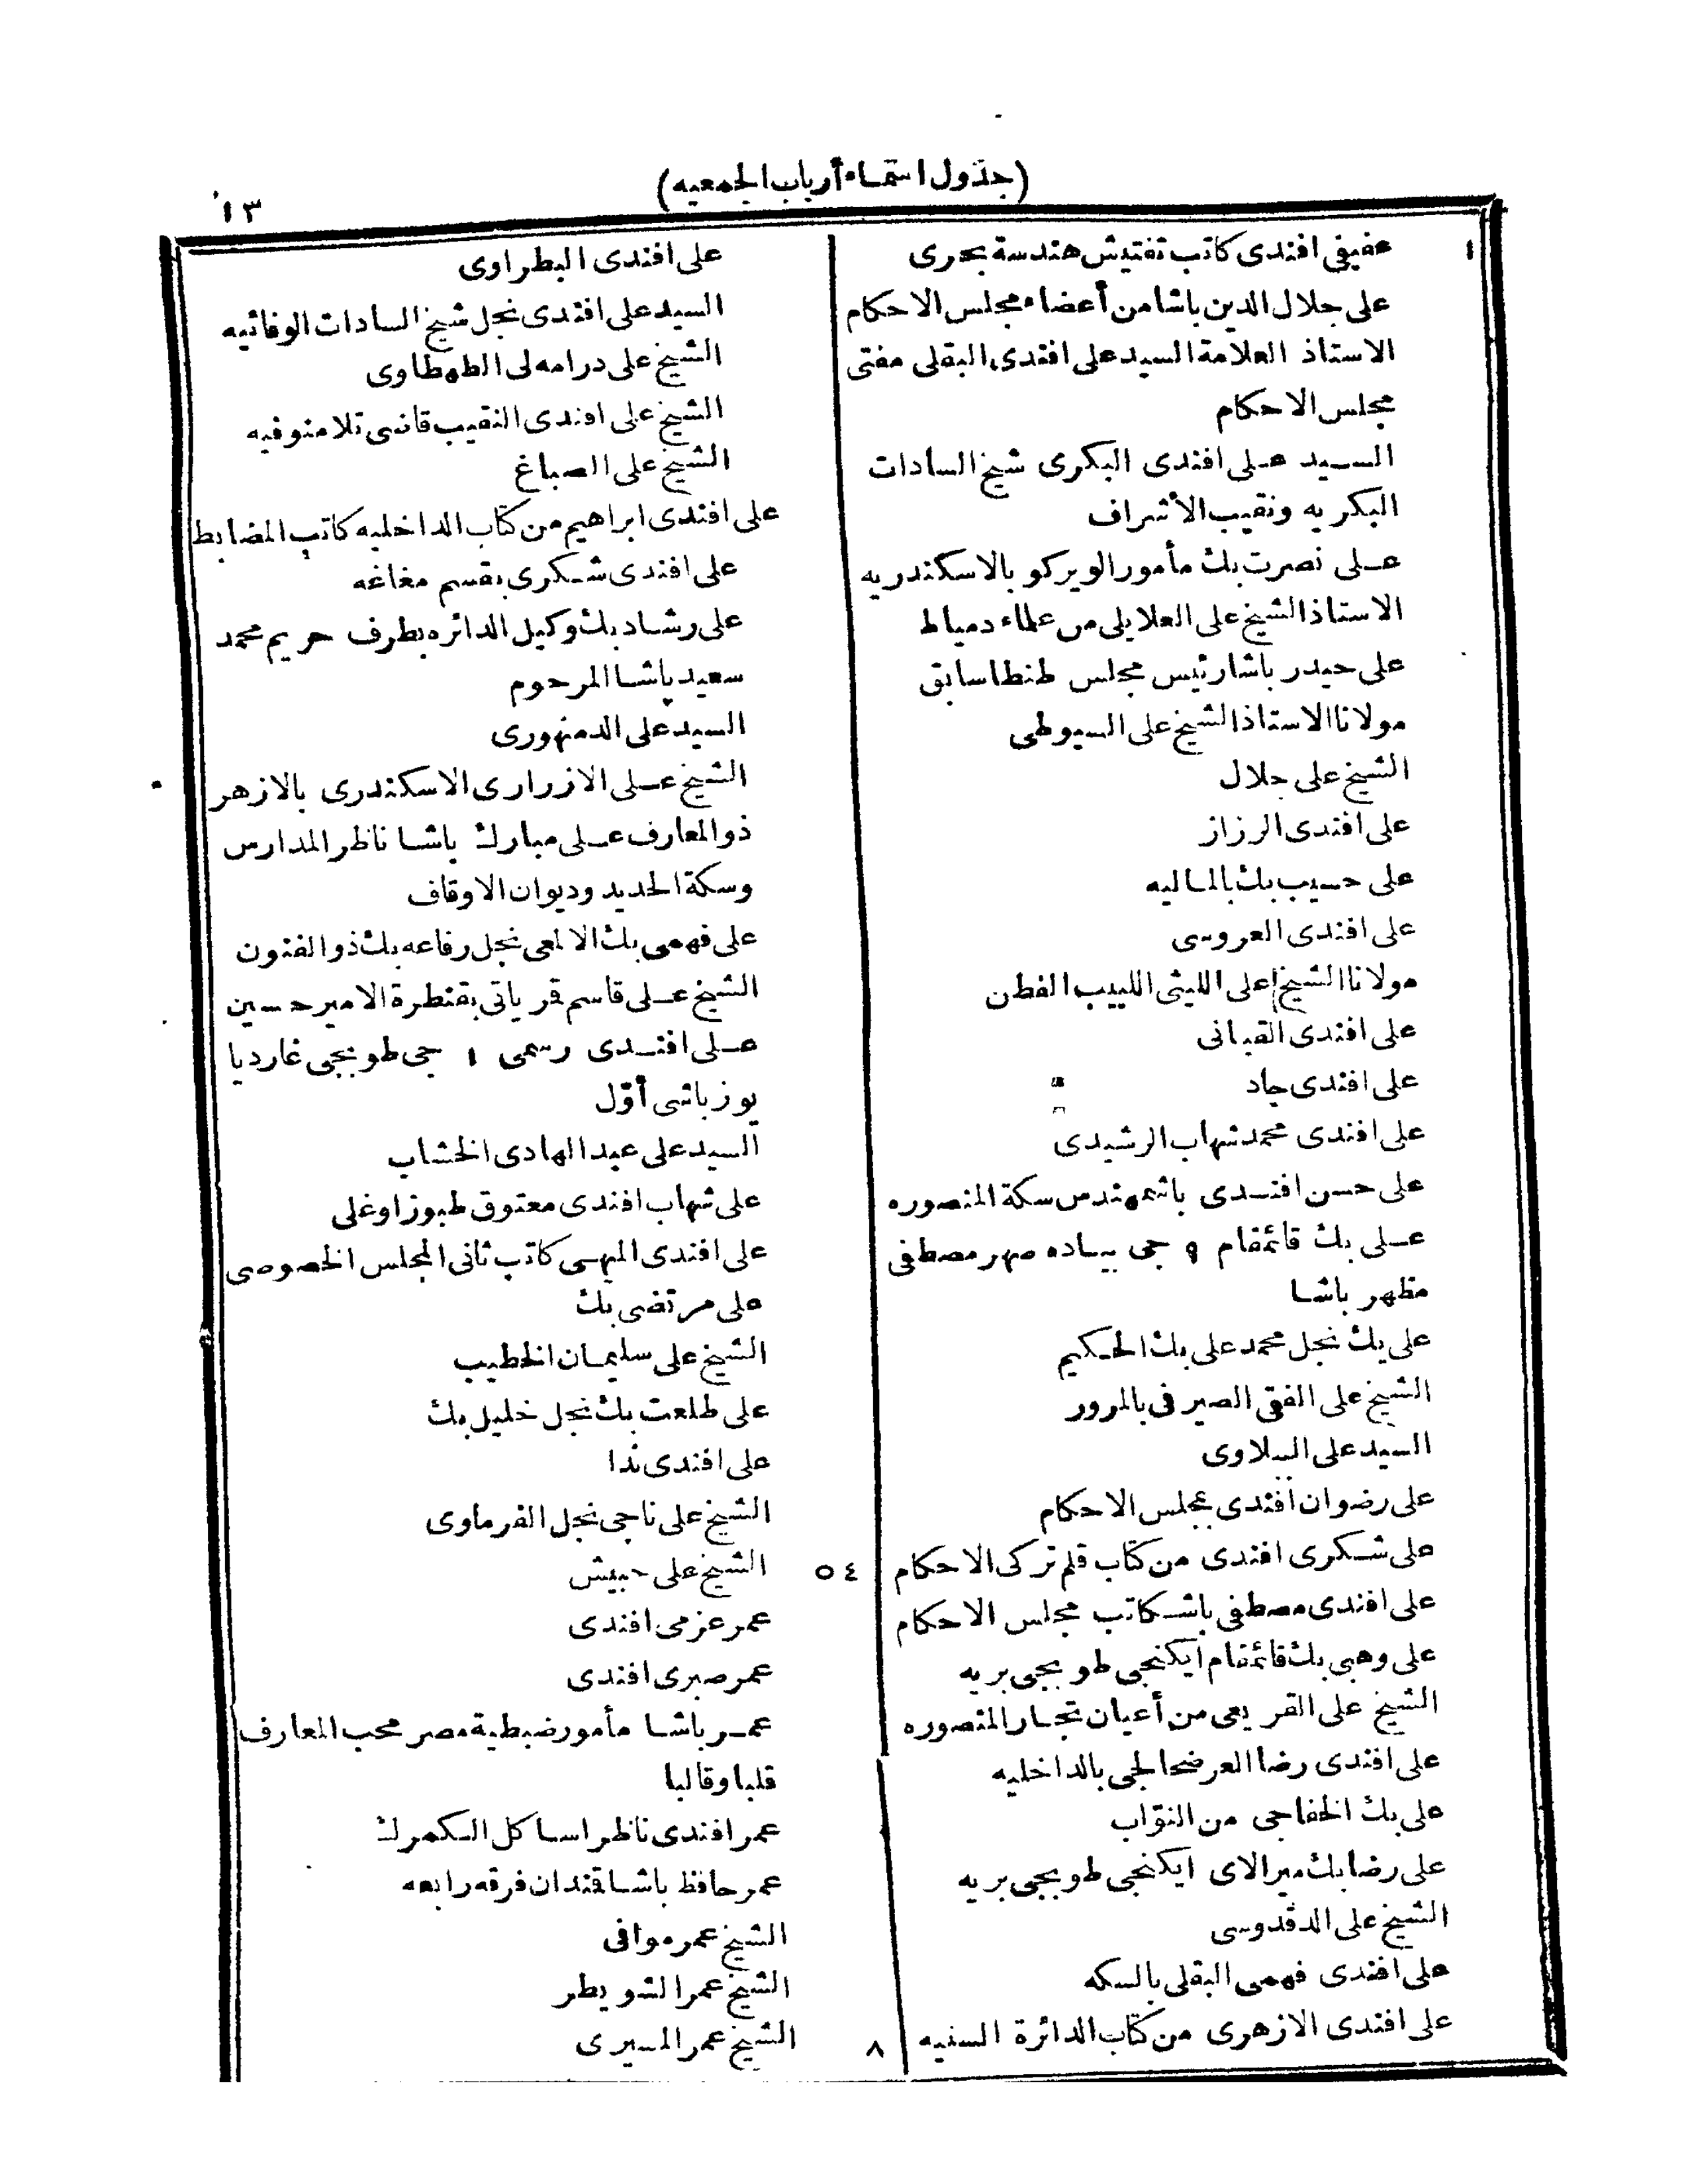 (جدول اسماء أرباب الجمعيه)
١٣
١
عفيفى افندى كاتب تفتيش هندسة بحرى
على جلال الدين باشا من أعضاء مجلس الاحكام
الاستاذ العلامة السيد على افندى البقلى مفتى
مجلس الاحكام
السيد على افندى البكرى شيخ السادات
البكريه ونقيب الأشراف
على نصرت بك مأمور الويركو بالاسكندريه
الاستاذ الشيخ على العلايلى من علماء دمياط
على حيدر باشا رئيس مجلس طنطا سابق
مولانا الاستاذ الشيخ على السيوطى
الشيخ على جلال
على افندى الرزاز
على حسيب بك بالماليه
على افندى العروسى
مولانا الشيخ على الليثى اللبيب الفطن
على افندى القبانى
على افندى جاد
على افندى محمد شهاب الرشيدى
على حسن افندى باشمهندس سكة المنصوره
على بك قائمقام ٩ جى بياده صهر مصطفى
مظهر باشا
على بك نجل محمد على بك الحكيم
الشيخ على الفقى الصيرفى بالمرور
السيد على الببلاوى
على رضوان افندى بمجلس الاحكام
على شكرى افندى من كتاب قلم تركى الاحكام
على افندى مصطفى باشكاتب مجلس الاحكام
على وهبى بك قائمقام ايكنجى طوبجى بريه
الشيخ على القريعى من أعيان تجار المنصوره
على افندى رضا العرضحالجى بالداخليه
على بك الخفاجى من النوّاب
على رضا بك ميرالاى ايكنجى طوبجى بريه
الشيخ على الدقدوسى
على افندى فهمى البقلى بالسكه
على افندى الازهرى من كتاب الدائرة السنيه
على افندى البطراوى
السيد على افندى نجل شيخ السادات الوفائيه
الشيخ على درامه لى الطهطاوى
الشيخ على افندى النقيب قاضى تلا منوفيه
الشيخ على الصباغ
على افندى ابراهيم من كتاب الداخليه كاتب المضابط
على افندى شكرى بقسم مغاغه
على رشاد بك وكيل الدائره بطرف حريم محمد
سعيد باشا المرحوم
السيد على الدمنهورى
الشيخ على الازرارى الاسكندرى بالازهر
ذو المعارف على مبارك باشا ناظر المدارس
وسكة الحديد وديوان الاوقاف
على فهمى بك الالمعى نجل رفاعه بك ذو الفنون
الشيخ على قاسم قرياتى بقنطرة الامير حسين
على افندى رسمى ١ جى طوبجى غارديا
يوزباشى أوّل
السيد على عبد الهادى الخشاب
على شهاب افندى معتوق طبوزاوغلى
على افندى المهسى كاتب ثانى المجلس الخصوصى
على مرتضى بك
الشيخ على سليمان الخطيب
على طلعت بك نجل خليل بك
على افندى ندا
الشيخ على ناجى نجل الفرماوى
٥٤ الشيخ على حبيش
عمر عزمى افندى
عمر صبرى افندى
عمر باشا مأمور ضبطية مصر محب المعارف
قلبا وقالبا
عمر افندى ناظر اساكل الكمرك
عمر حافظ باشا قندان فرقه رابعه
الشيخ عمر موافى
الشيخ عمر الشويطر
٨ الشيخ عمر المسيرى